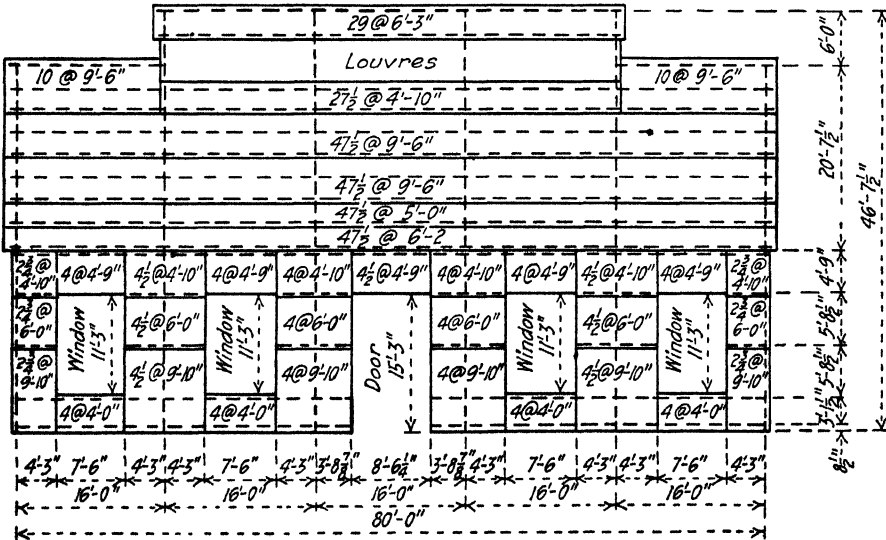 29 @ 6'-3"
Louvres
10 @ 9'-6"
10 @ 9'-6"
27½ @ 4'-10"
47½ @ 9'-6"
47½ @ 9'-6"
47½ @ 5'-0"
47½ @ 6'-2
2¾ @ 4'-10" 4@4'-9" 4½@4'-10" 4@4'-9" 4@4'-10" 4½@4'-9" 4@4'-10" 4@4'-9" 4½@4'-10" 4@4'-9" 2¾ @ 4'-10"
2¾ @ 6'-0" 4½@6'-0" 4@6'-0" 4@6'-0" 4½@6'-0" 2¾ @ 6'-0"
Window 11'-3" Window 11'-3" Door 15'-3" Window 11'-3" Window 11'-3"
2¾ @ 9'-10" 4½@9'-10" 4@9'-10" 4@9'-10" 4½@9'-10" 2¾ @ 9'-10"
4@4'-0" 4@4'-0" 4@4'-0" 4@4'-0"
4'-3" 7'-6" 4'-3" 4'-3" 7'-6" 4'-3" 3'-8⅞" 8'-6¼" 3'-8⅞" 4'-3" 7'-6" 4'-3" 4'-3" 7'-6" 4'-3"
16'-0" 16'-0" 16'-0" 16'-0" 16'-0"
80'-0"
6'-0"
20'-7½"
4'-9"
5'-8½"
5'-8½"
3'-1½"
8½"
46'-7½"